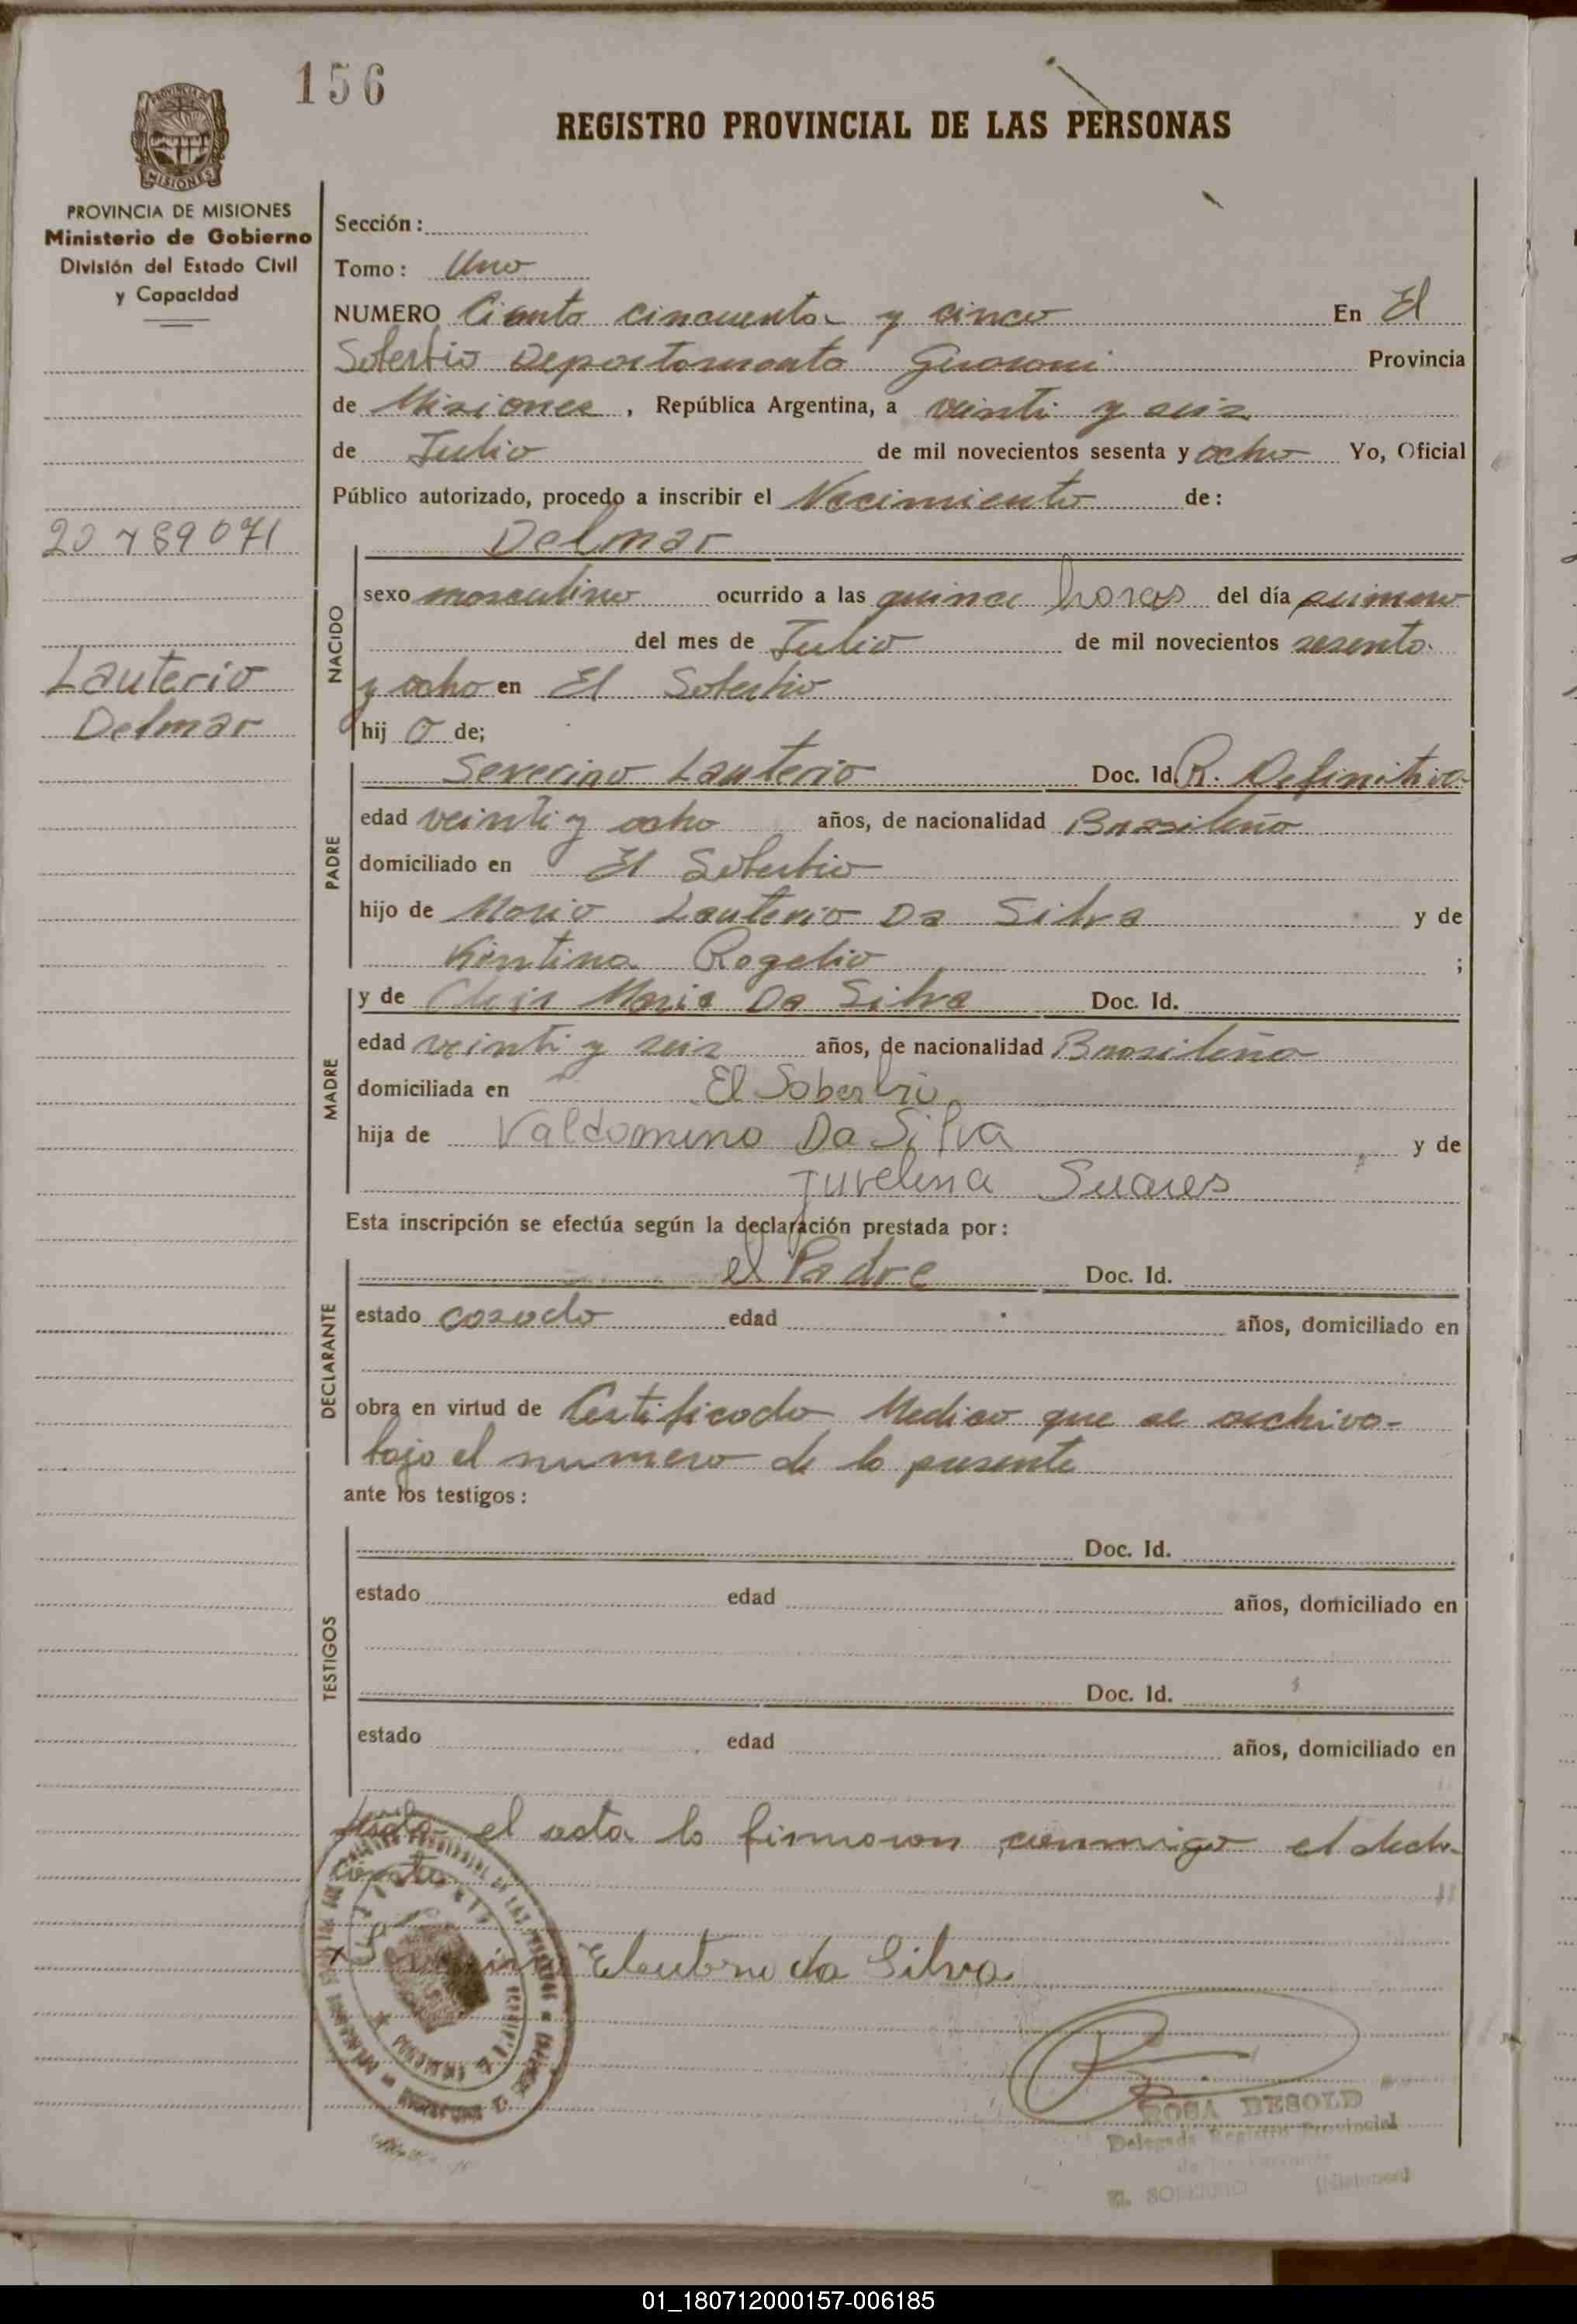 156
REGISTRO PROVINCIAL DE LAS PERSONAS
PROVINCIA DE
MISIONES
PROVINCIA DE MISIONES
Ministerio de Gobierno
División del Estado Civil
y Capacidad
20789071
Lauterio
Delmar
Sección:
Tomo: Uno
NUMERO Ciento cincuenta y cinco En El
Soberbio Departamento Guarani Provincia
de Misiones, República Argentina, a veinti y seis
de Julio de mil novecientos sesenta y ocho Yo, Oficial
Público autorizado, procedo a inscribir el Nacimiento de:
Delmar
NACIDO
sexo masculino ocurrido a las quince horas del día primero
del mes de Julio de mil novecientos sesenta
y ocho en El Soberbio
hijo de;
PADRE
Severino Lauterio Doc. Id. R. Definitiva
edad veinti y ocho años, de nacionalidad Brasileño
domiciliado en El Soberbio
hijo de Mario Lauterio Da Silva y de
Kintina Rogelio ;
MADRE
y de Maria Da Silva Doc. Id.
edad veinti y seis años, de nacionalidad Brasileña
domiciliada en El Soberbio
hija de Valdomino Da Silva y de
Juvelina Suares
Esta inscripción se efectúa según la declaración prestada por:
DECLARANTE
el Padre Doc. Id.
estado casado edad años, domiciliado en
obra en virtud de Certificado Medico que se archiva
bajo el numero de la presente
ante los testigos:
TESTIGOS
Doc. Id.
estado edad años, domiciliado en
Doc. Id.
estado edad años, domiciliado en
el acta la firmaron conmigo el decla-
rante
da Silva
ROSA BESOLD
Delegada Registro Provincial
de las Personas
EL SOBERBIO (Misiones)
01_180712000157-006185